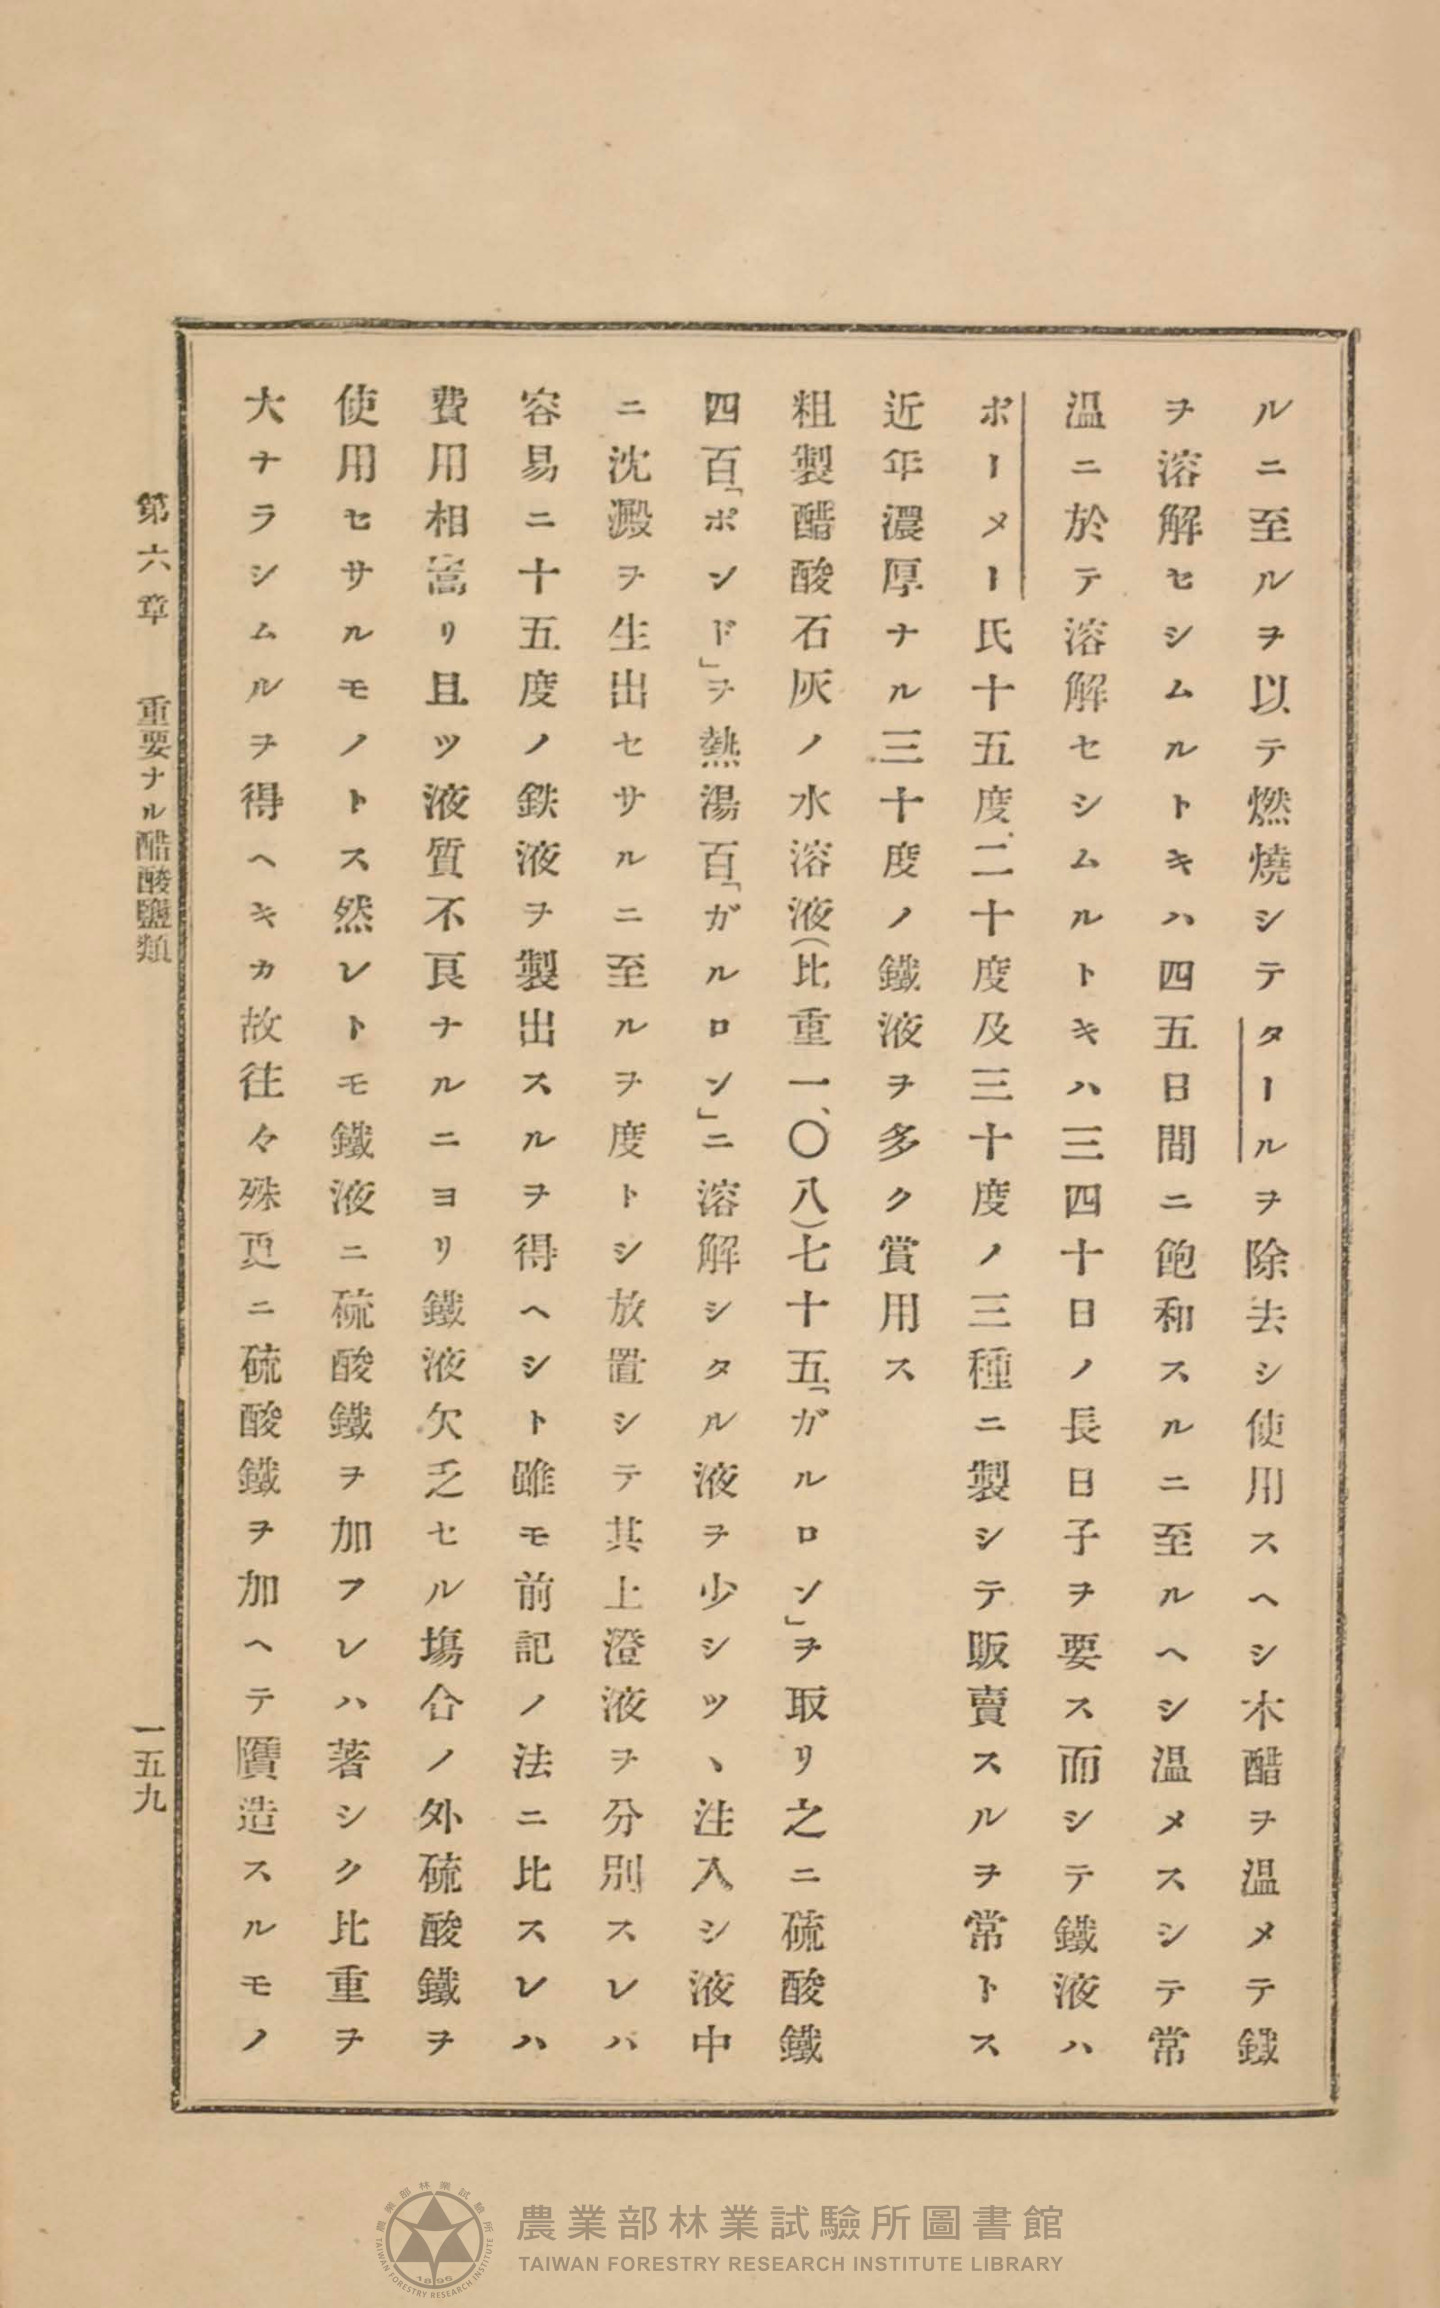 ルニ至ルヲ以テ燃燒シテタールヲ除去シ使用スヘシ木醋ヲ温メテ鐵
ヲ溶解セシムルトキハ四五日間ニ飽和スルニ至ルヘシ温メスシテ常
温ニ於テ溶解セシムルトキハ三四十日ノ長日子ヲ要ス而シテ鐵液ハ
ボーメー氏十五度、二十度及三十度ノ三種ニ製シテ販賣スルヲ常トス
近年濃厚ナル三十度ノ鐵液ヲ多ク賞用ス
粗製醋酸石灰ノ水溶液(比重一、〇八)七十五「ガルロン」ヲ取リ之ニ硫酸鐵
四百「ポンド」ヲ熱湯百「ガルロン」ニ溶解シタル液ヲ少シツヽ注入シ液中
ニ沈澱ヲ生出セサルニ至ルヲ度トシ放置シテ其上澄液ヲ分別スレバ
容易ニ十五度ノ鉄液ヲ製出スルヲ得ヘシト雖モ前記ノ法ニ比スレハ
費用相嵩リ且ツ液質不良ナルニヨリ鐵液欠乏セル塲合ノ外硫酸鐵ヲ
使用セサルモノトス然レトモ鐵液ニ硫酸鐵ヲ加フレハ著シク比重ヲ
大ナラシムルヲ得ヘキカ故往々殊更ニ硫酸鐵ヲ加ヘテ贋造スルモノ
第六章 重要ナル醋酸鹽類
一五九
農業部林業試驗所圖書館
TAIWAN FORESTRY RESEARCH INSTITUTE LIBRARY
農業部林業試驗所
TAIWAN FORESTRY RESEARCH INSTITUTE
1896